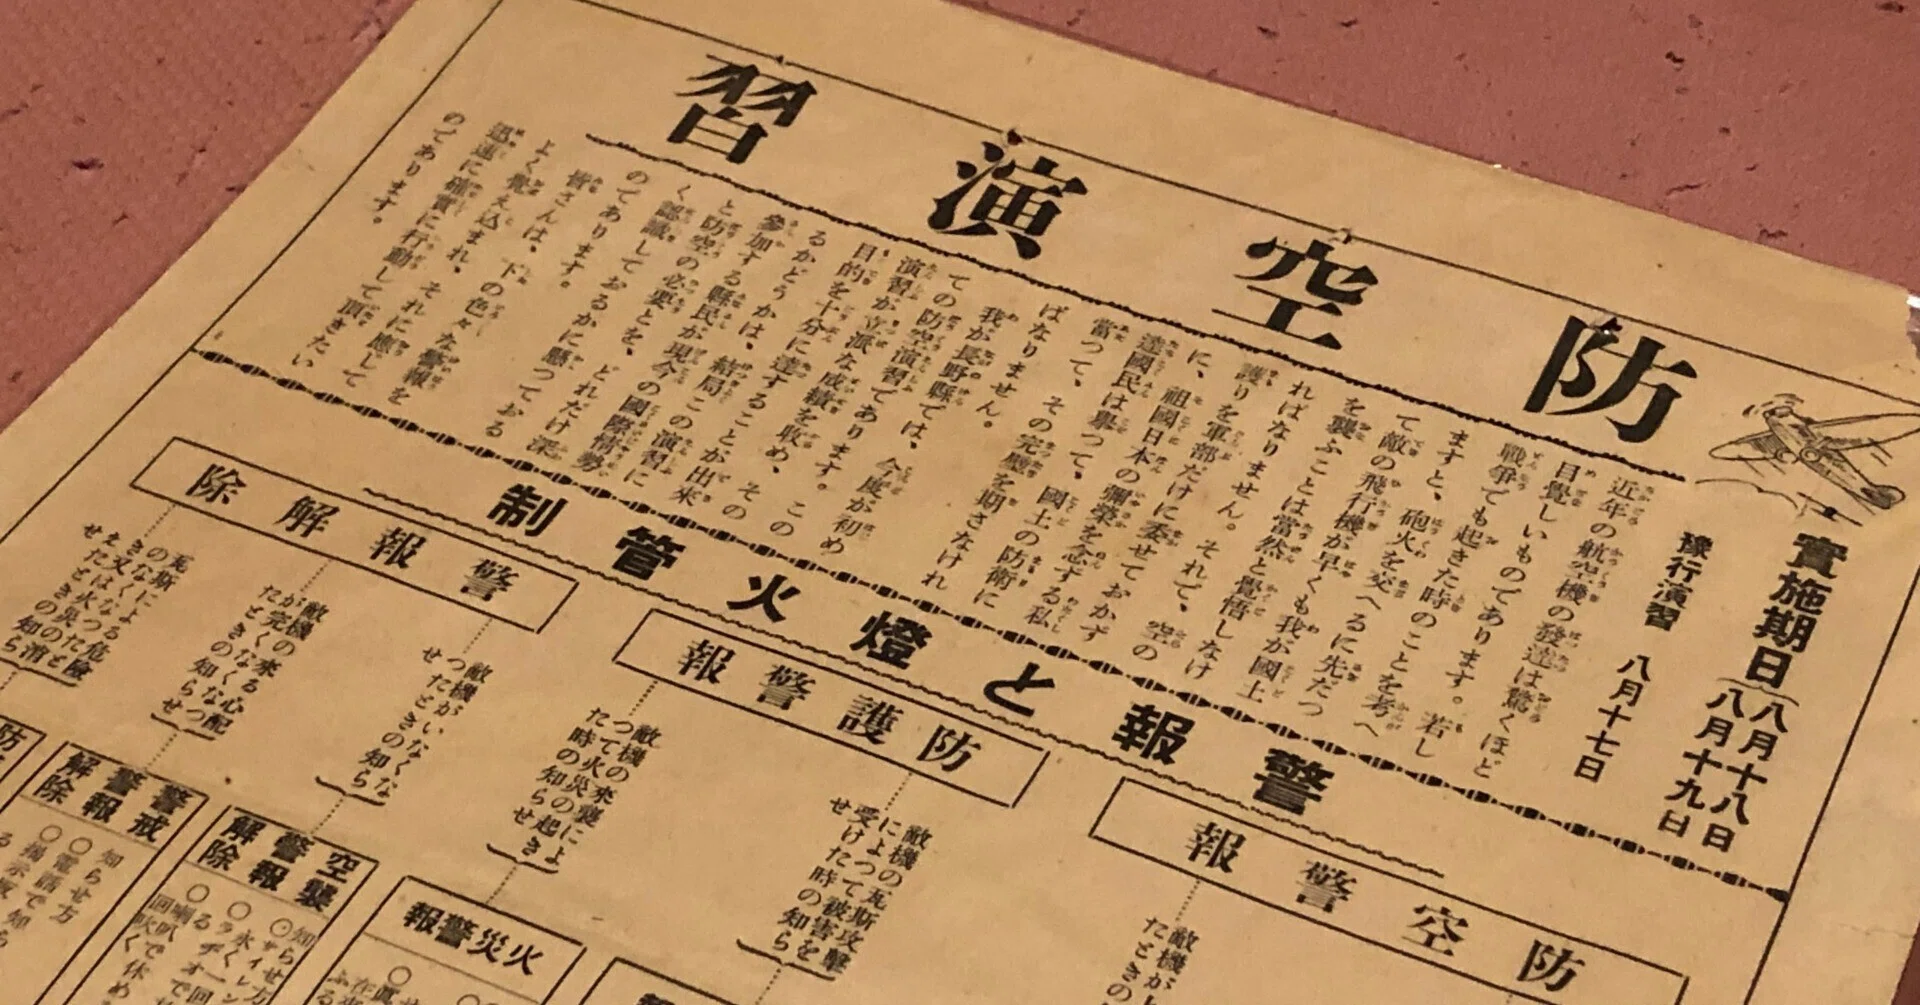 防空演習
實施期日(八月十八日
八月十九日
豫行演習 八月十七日
近年の航空機の發達は驚くほど
目覺しいものであります。若し
戰爭でも起きた時のことを考へ
ますと、砲火を交へるに先だつ
て敵の飛行機が早くも我が國土
を襲ふことは當然と覺悟しなけ
ればなりません。それで、空の
護りを軍部だけに委せておかず
に、祖國日本の彌榮を念ずる私
達國民は擧つて、國土の防衛に
當つて、その完璧を期さなけれ
ばなりません。
我が長野縣では、今度が初め
ての防空演習であります。この
演習が立派な成績を收め、その
目的を十分に達することが出來
るかどうかは、結局この演習に
參加する縣民が現今の國際情勢
と防空の必要とを、どれだけ深
く認識しておるかに懸つておる
のであります。
皆さんは、下の色々な警報を
よく覺え込まれ、それに應じて
迅速に確實に行動して頂きたい
のであります。
警報と燈火管制
防空警報
敵機が
たときの
防護警報
敵機の瓦斯攻擊
によつて被害を
受けた時の知ら
せ
敵機の來襲によ
つて火災の起き
た時の知らせ
警報解除
敵機がいなくな
つたときの知ら
せ
敵機の來る心配
が完くなくなつ
たときの知らせ
瓦斯による危險
のなくなつたと
き又は火災の消
えたときの知ら
せ
火災警報
空襲
警報
解除
知らせ方
○サイレン
○ラヂオで
警戒
警報
解除
知らせ方
○電話で
○揭示板
防